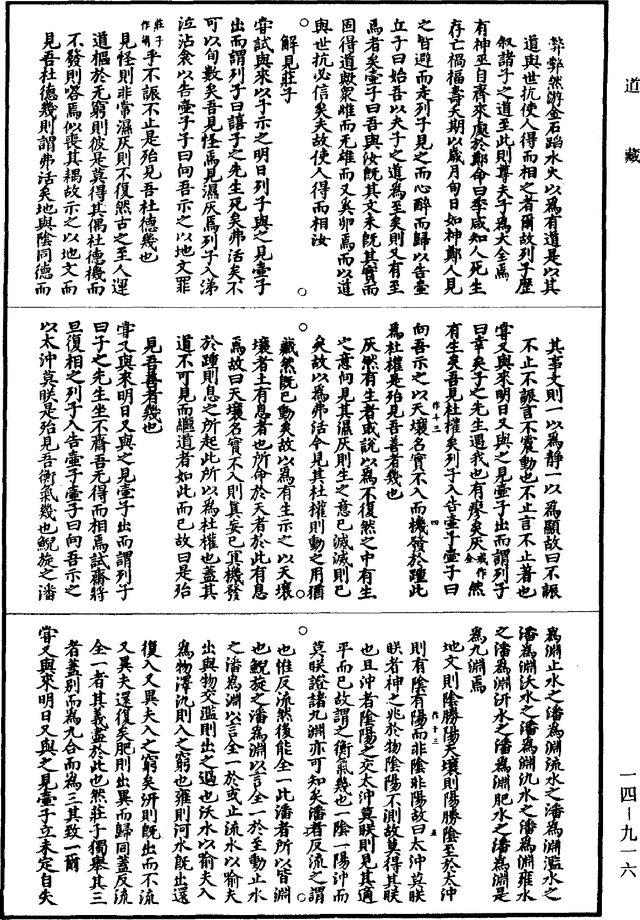 道藏
弊弊然游金石蹈水火以為有道是以其
道與世抗使人得而相之者爾故列子歷
叙諸子之道至此則尊夫子為大全焉
有神巫自齊來處於鄭命曰季咸知人死生
存亡禍福壽夭期以歲月旬日如神鄭人見
之皆避而走列子見之而心醉而歸以告壺
丘子曰始吾以夫子之道為至矣則又有至
焉者矣壺子曰吾與汝既其文未既其實而
固得道與眾雌而无雄而又奚卵焉而以道
與世抗必信矣夫故使人得而相汝
解見莊子
嘗試與來以予示之明日列子與之見壺子
出而謂列子曰譆子之先生死矣弗活矣不
可以旬數矣吾見怪焉見濕灰焉列子入涕
泣沾衾以告壺子子曰向吾示之以地文罪
莊子作萌乎不誫不止是殆見吾杜德幾也
見怪則非常濕灰則不復然古之至人運
道樞於无窮則彼是莫得其偶杜德機而
不發則嗒焉似喪其耦故示之以地文而
見吾杜德幾則謂弗活矣地與陰同德而
其事文則一以為靜一以為顯故曰不誫
不止不誫言不震動也不止言不止著也
嘗又與來明日又與之見壺子出而謂列子
曰幸矣子之先生遇我也有瘳矣灰或作全然
有生矣吾見杜權矣列子入告壺子壺子曰
向吾示之以天壤名實不入而機發於踵此
為杜權是殆見吾善者幾也
灰然有生者或說以為不復然之中有生
之意向見其濕灰則生之意已滅滅則已
矣故以為弗活今見其杜權則動之用猶
藏然既已動矣故以為有生示之以天壤
壤者土有息者也所命於天者於此有息
焉故曰天壤名實不入則真妄已冥機發
於踵則息之所起此所以為杜權也蓋其
道不可見而繼道者如此而已故曰是殆
見吾善者幾也
嘗又與來明日又與之見壺子出而謂列子
曰子之先生坐不齋吾无得而相焉試齋將
旦復相之列子入告壺子壺子曰向吾示之
以太沖莫眹是殆見吾衡氣幾也鯢旋之潘
為淵止水之潘為淵流水之潘為淵濫水之
潘為淵沃水之潘為淵氿水之潘為淵雍水
之潘為淵汧水之潘為淵肥水之潘為淵是
為九淵焉
地文則陰勝陽天壤則陽勝陰至於太沖
則有陰有陽而非陰非陽故曰太沖莫眹
眹者神之兆於物陰陽不測故莫得其眹
也且沖者陰陽之交太沖莫眹則見其適
平而已故謂之衡氣幾也一陰一陽沖而
莫眹證諸九淵亦可知矣潘者反流之謂
也惟反流然後能全一此潘者所以皆淵
也鯢旋之潘為淵以言全一於至動止水
之潘為淵以言全一於或止流水以喻夫
出與物交濫則出之過也沃水以喻夫入
為物澤氿則入之窮也雍則河水既出還
復入又異夫入之窮矣汧則既出而不流
又異夫還復矣肥則出異而歸同蓋反流
全一者其義盡於此也然莊子獨舉其三
者蓋別而為九合而為三其致一爾
嘗又與來明日又與之見壺子立未定自失
作十三
四
作十三
五
一四-九一六